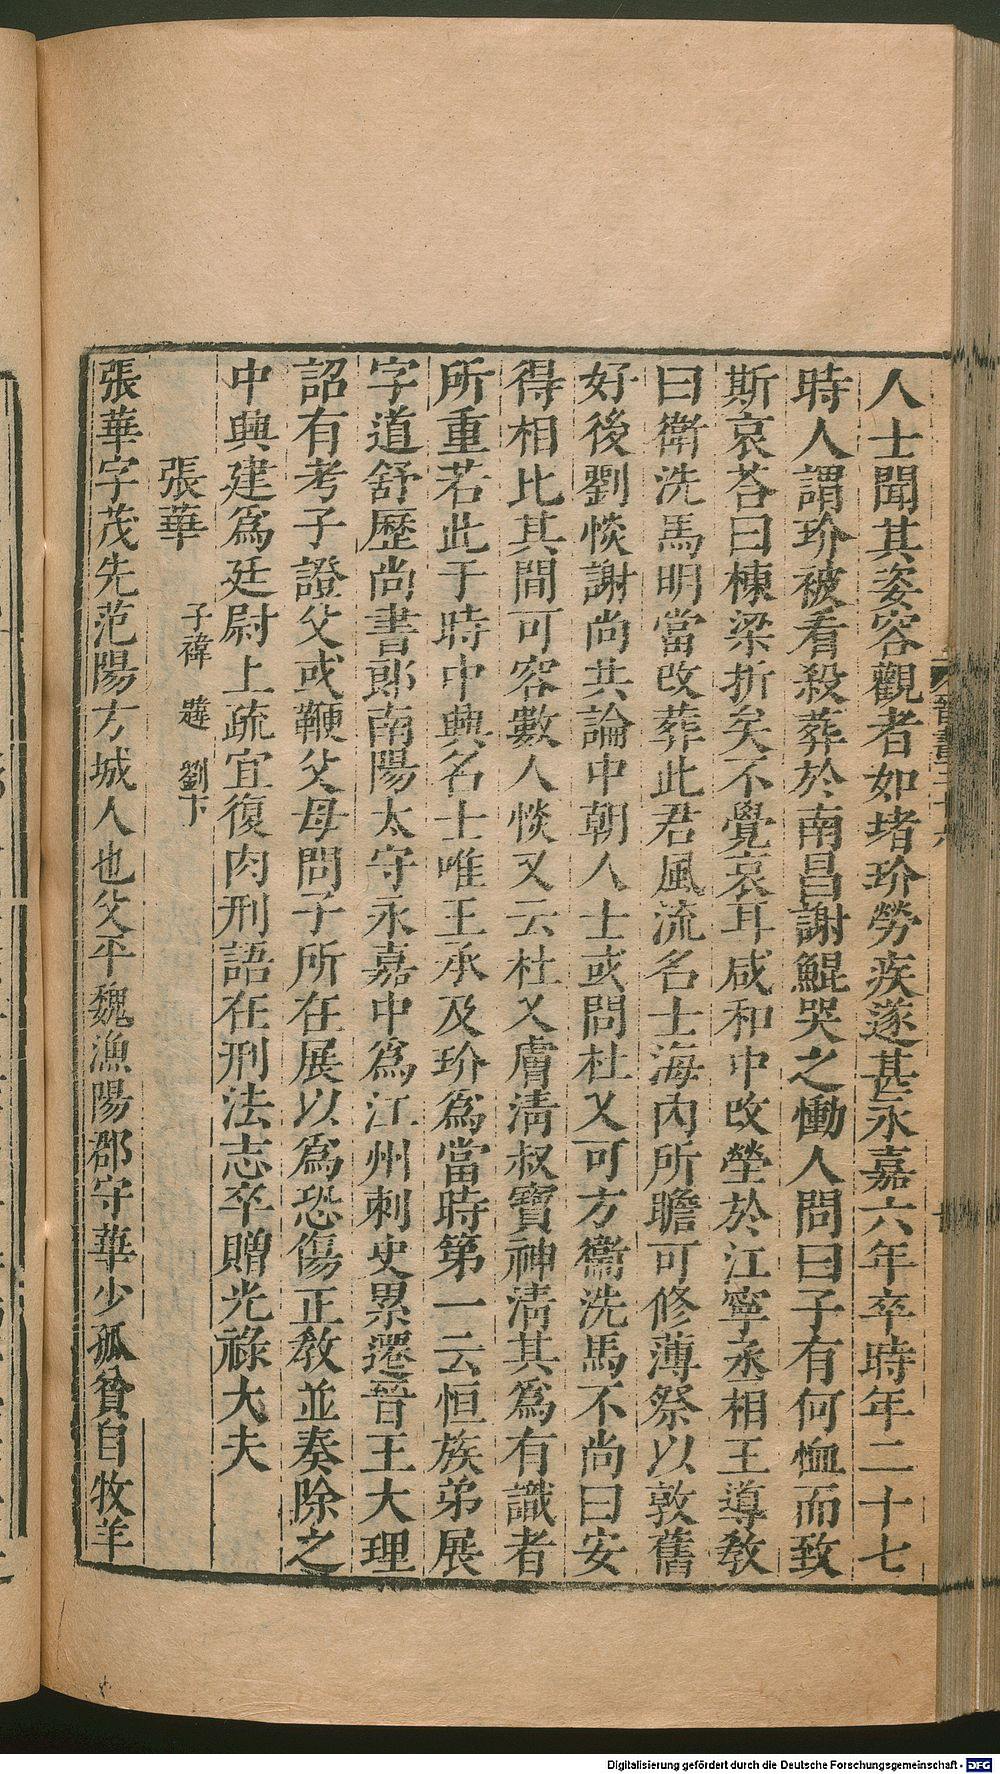 人士聞其姿容觀者如堵玠勞疾遂甚永嘉六年卒時年二十七
時人謂玠被看殺葬於南昌謝鯤哭之慟人問曰子有何恤而致
斯哀荅曰棟梁折矣不覺哀耳咸和中改塋於江寧丞相王導教
曰衛洗馬明當改葬此君風流名士海內所瞻可修薄祭以敦舊
好後劉惔謝尚共論中朝人士或問杜乂可方衞洗馬不尚曰安
得相比其間可容數人惔又云杜乂膚清叔寶神清其為有識者
所重若此于時中興名士唯王承及玠為當時第一云恒族弟展
字道舒歷尚書郎南陽太守永嘉中為江州刺史累遷晉王大理
詔有考子證父或鞭父母問子所在展以為恐傷正教並奏除之
中興建為廷尉上疏宜復肉刑語在刑法志卒贈光祿大夫
張華 子禕 韙 劉卞
張華字茂先范陽方城人也父平魏漁陽郡守華少孤貧自牧羊
Digitalisierung gefördert durch die Deutsche Forschungsgemeinschaft - DFG